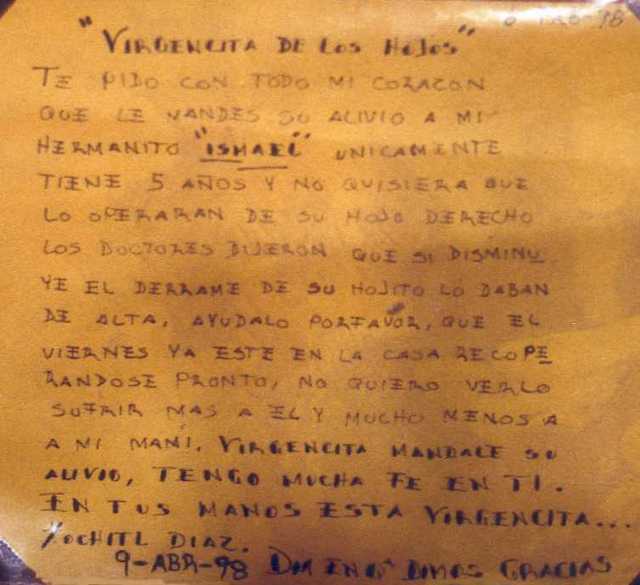 "VIRGENCITA DE LOS HOJOS"
TE PIDO CON TODO MI CORAZON
QUE LE MANDES SU ALIVIO A MI
HERMANITO "ISMAEL" UNICAMENTE
TIENE 5 AÑOS Y NO QUISIERA QUE
LO OPERARAN DE SU HOJO DERECHO
LOS DOCTORES DIJERON QUE SI DISMINU
YE EL DERRAME DE SU HOJITO LO DABAN
DE ALTA, AYUDALO PORFAVOR, QUE EL
VIERNES YA ESTE EN LA CASA RECOPE
RANDOSE PRONTO, NO QUIERO VERLO
SUFRIR MAS A EL Y MUCHO MENOS A
A MI MAMI. VIRGENCITA MANDALE SU
ALIVIO, TENGO MUCHA FE EN TI.
EN TUS MANOS ESTA VIRGENCITA...
XOCHITL DIAZ.
9-ABR-98 GRACIAS